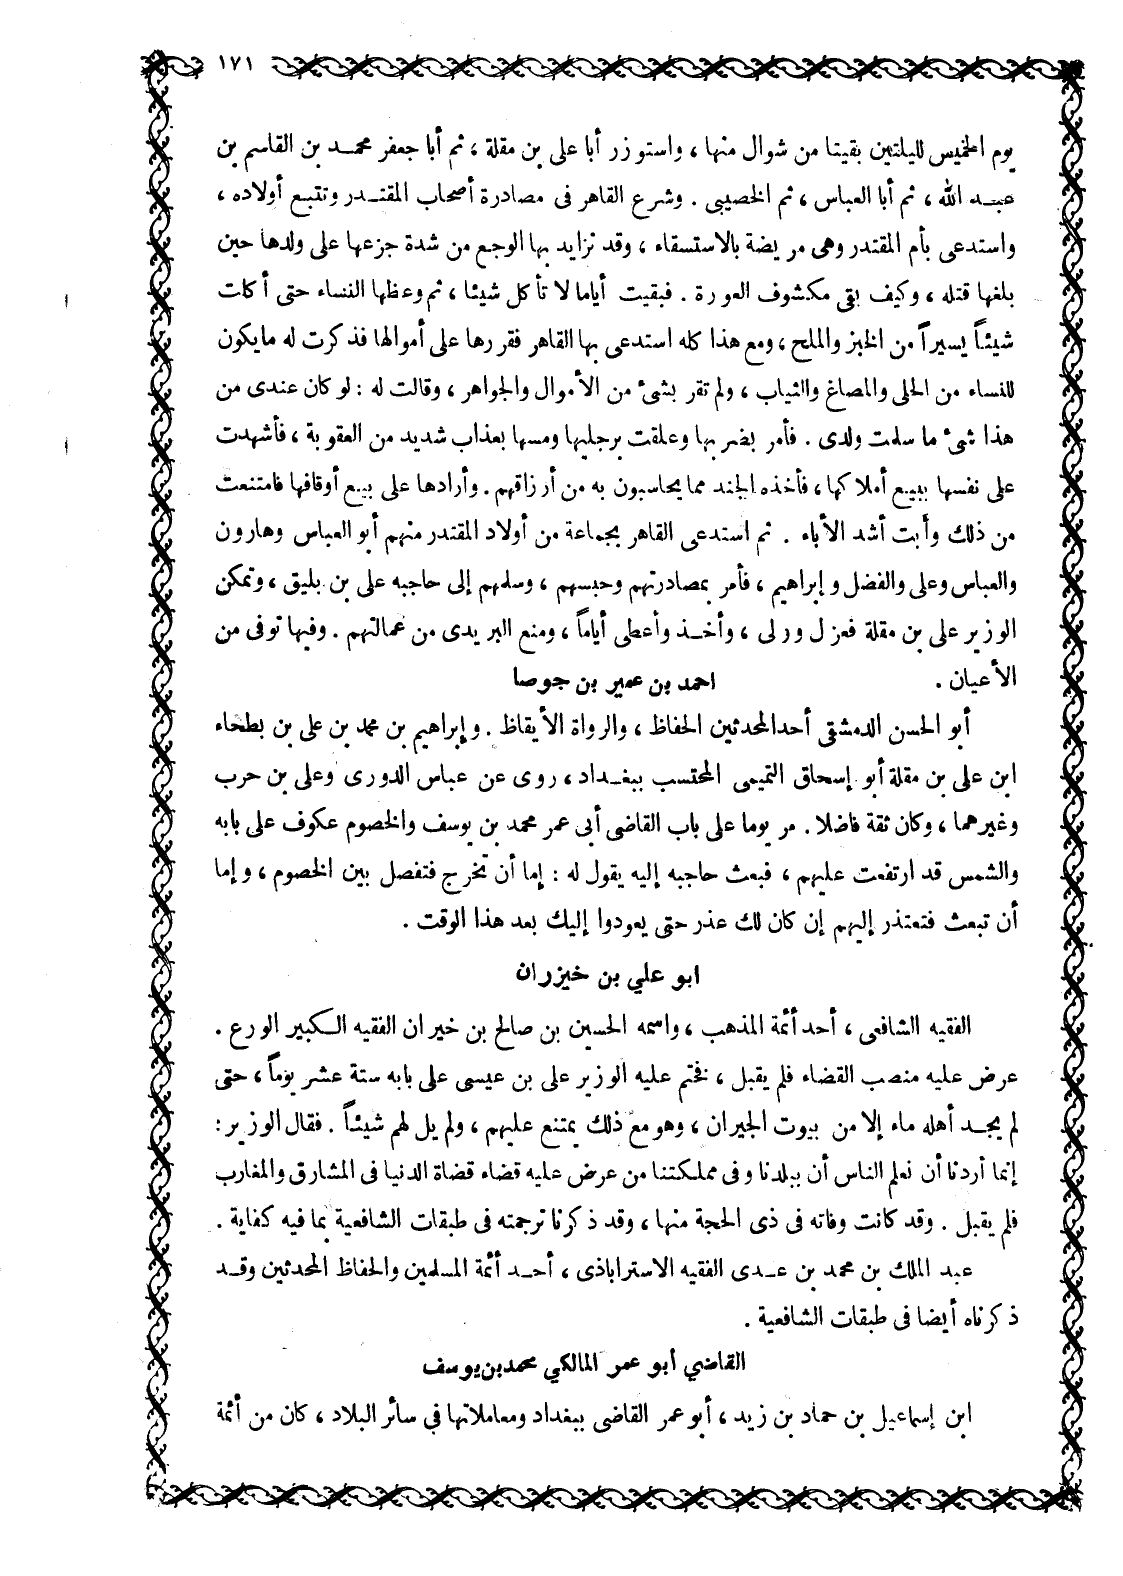 ١٧١
يوم الخميس لليلتين بقيتا من شوال منها ، واستوزر أبا على بن مقلة ، ثم أبا جعفر محمد بن القاسم بن
عبد الله ، ثم أبا العباس ، ثم الخصيبى . وشرع القاهر فى مصادرة أصحاب المقتدر وتتبع أولاده ،
واستدعى بأم المقتدر وهى مريضة بالاستسقاء ، وقد تزايد بها الوجع من شدة جزعها على ولدها حين
بلغها قتله ، وكيف بقى مكشوف العورة . فبقيت أياما لا تأكل شيئا ، ثم وعظها النساء حتى أكلت
شيئاً يسيراً من الخبز والملح ، ومع هذا كله استدعى بها القاهر فقررها على أموالها فذكرت له ما يكون
للنساء من الحلى والمصاغ والثياب ، ولم تقر بشئ من الأموال والجواهر ، وقالت له : لو كان عندى من
هذا شئ ما سلمت ولدى . فأمر بضربها وعلقت برجليها ومسها بعذاب شديد من العقوبة ، فأشهدت
على نفسها ببيع أملاكها ، فأخذه الجند مما يحاسبون به من أرزاقهم . وأرادها على بيع أوقافها فامتنعت
من ذلك وأبت أشد الأباء . ثم استدعى القاهر بجماعة من أولاد المقتدر منهم أبو العباس وهارون
والعباس وعلى والفضل وإبراهيم ، فأمر بمصادرتهم وحبسهم ، وسلمهم إلى حاجبه على بن بليق ، وتمكن
الوزير على بن مقلة فعزل وولى ، وأخذ وأعطى أياماً ، ومنع البريدى من عمالتهم . وفيها توفى من
الأعيان .
احمد بن عمير بن جوصا
أبو الحسن الدمشقى أحد المحدثين الحفاظ ، والرواة الأيقاظ . وإبراهيم بن محمد بن على بن بطحاء
ابن على بن مقلة أبو إسحاق التميمى المحتسب ببغداد ، روى عن عباس الدورى وعلى بن حرب
وغيرهما ، وكان ثقة فاضلا . مر يوما على باب القاضى أبى عمر محمد بن يوسف والخصوم عكوف على بابه
والشمس قد ارتفعت عليهم ، فبعث حاجبه إليه يقول له : إما أن تخرج فتفصل بين الخصوم ، وإما
أن تبعث فتعتذر إليهم إن كان لك عذر حتى يعودوا إليك بعد هذا الوقت .
ابو علي بن خيزران
الفقيه الشافعى ، أحد أئمة المذهب ، واسمه الحسين بن صالح بن خيران الفقيه الكبير الورع .
عرض عليه منصب القضاء فلم يقبل ، فختم عليه الوزير على بن عيسى على بابه ستة عشر يوماً ، حتى
لم يجد أهله ماء إلا من بيوت الجيران ، وهو مع ذلك يمتنع عليهم ، ولم يل لهم شيئاً . فقال الوزير :
إنما أردنا أن نعلم الناس أن ببلدنا وفى مملكتنا من عرض عليه قضاء قضاة الدنيا فى المشارق والمغارب
فلم يقبل . وقد كانت وفاته فى ذى الحجة منها ، وقد ذكرنا ترجمته فى طبقات الشافعية بما فيه كفاية .
عبد الملك بن محمد بن عدى الفقيه الاستراباذى ، أحد أئمة المسلمين والحفاظ المحدثين وقد
ذكرناه أيضا فى طبقات الشافعية .
القاضي أبو عمر المالكي محمد بن يوسف
ابن إسماعيل بن حماد بن زيد ، أبو عمر القاضى ببغداد ومعاملاتها في سائر البلاد ، كان من أئمة